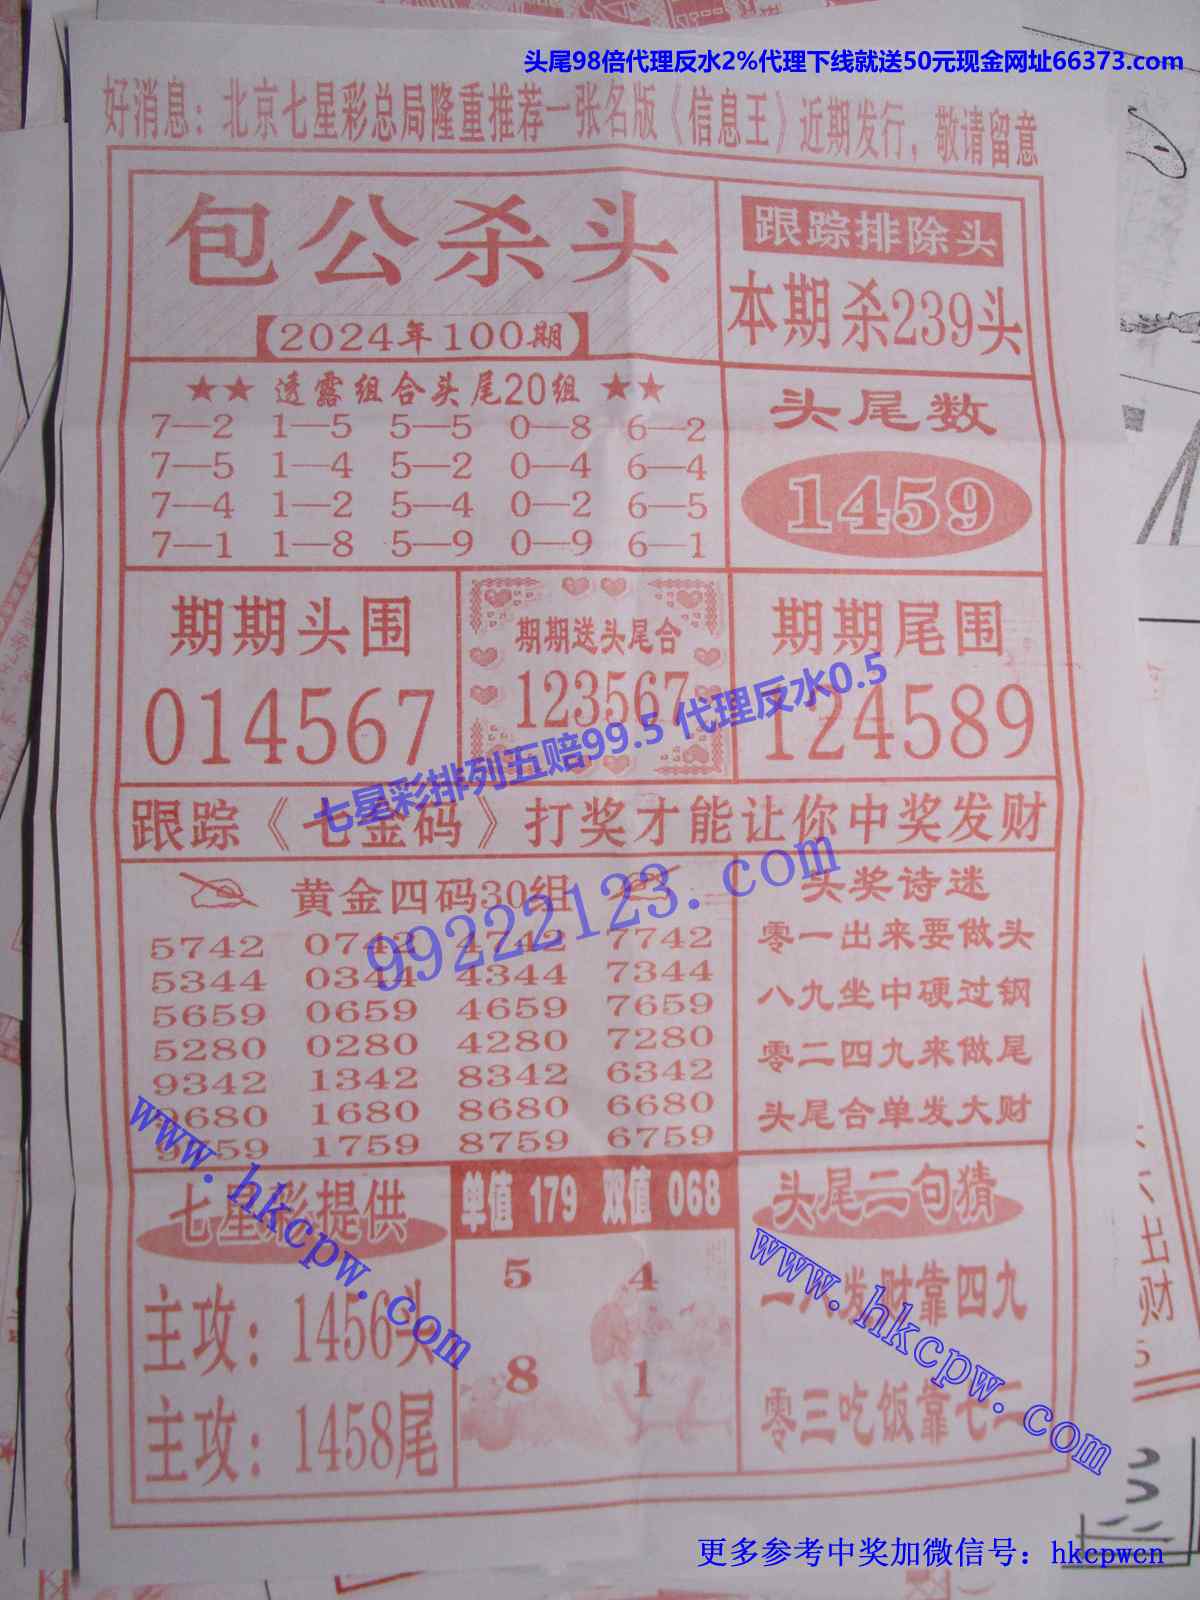 头尾98倍代理反水2%代理下线就送50元现金网址66373.com
好消息：北京七星彩总局隆重推荐一张名版《信息王》近期发行，敬请留意
包公杀头
【2024年100期】
跟踪排除头
本期杀239头
★★ 透露组合头尾20组 ★★
7—2 1—5 5—5 0—8 6—2
7—5 1—4 5—2 0—4 6—4
7—4 1—2 5—4 0—2 6—5
7—1 1—8 5—9 0—9 6—1
头尾数
1459
期期头围
014567
期期送头尾合
123567
期期尾围
124589
七星彩排列五赔99.5 代理反水0.5
跟踪《七金码》打奖才能让你中奖发财
99222123.com
黄金四码30组
5742 0742 4742 7742
5344 0344 4344 7344
5659 0659 4659 7659
5280 0280 4280 7280
9342 1342 8342 6342
9680 1680 8680 6680
9759 1759 8759 6759
头奖诗迷
零一出来要做头
八九坐中硬过钢
零二四九来做尾
头尾合单发大财
www.hkcpw.com
七星彩提供
主攻：1456头
主攻：1458尾
单值 179 双值 068
5 4
8 1
头尾二句猜
www.hkcpw.com
一八发财靠四九
零三吃饭靠七二
更多参考中奖加微信号：hkcpwcn